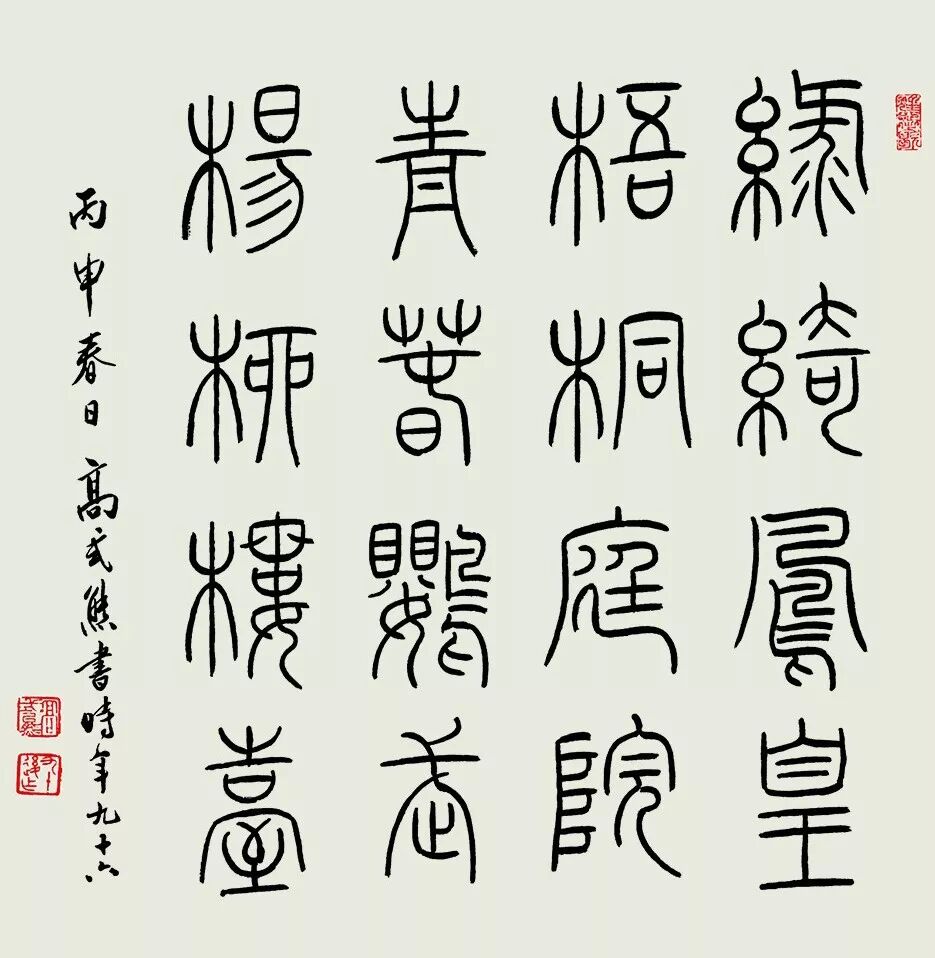 綠綺鳳皇
梧桐庭院
青春鸚武
楊柳樓臺
丙申春日高式熊書時年九十六